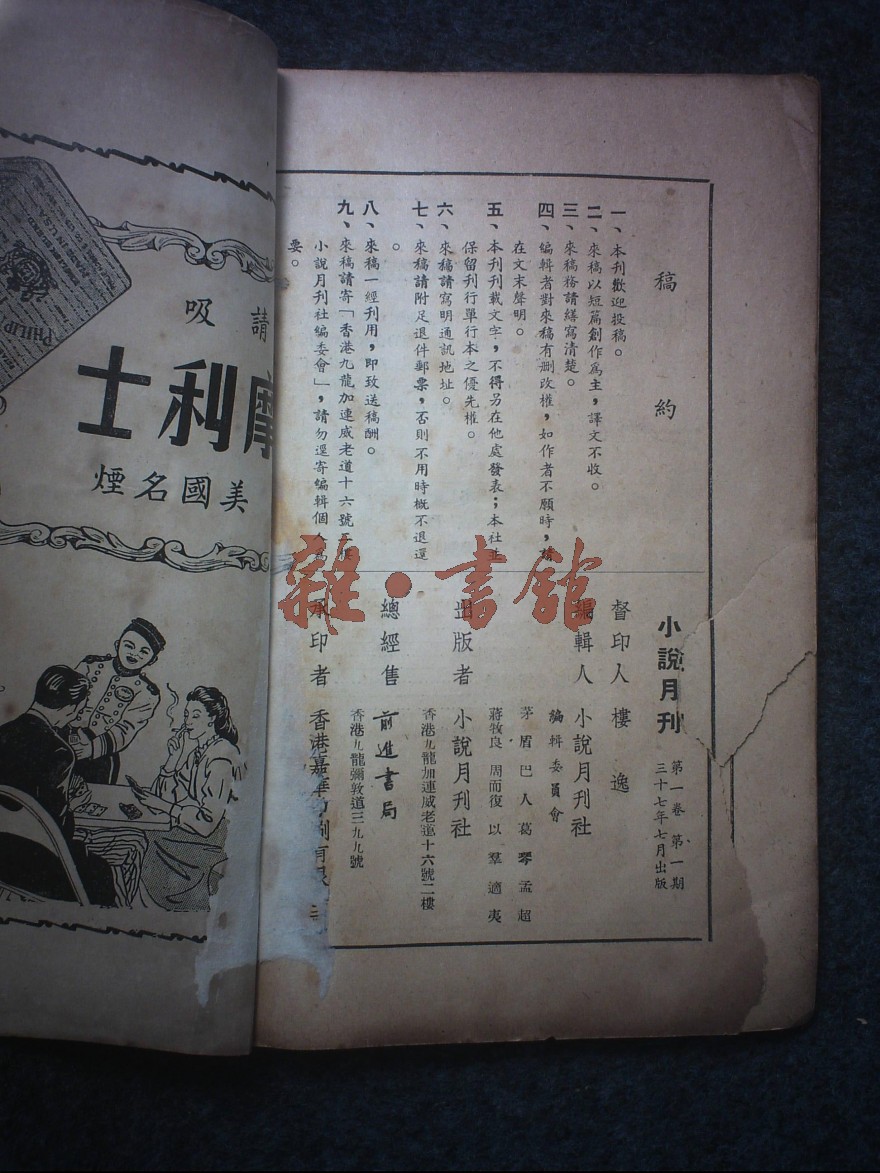 稿約
一、本刊歡迎投稿。
二、來稿以短篇創作爲主，譯文不收。
三、來稿務請繕寫清楚。
四、編輯者對來稿有刪改權，如作者不願時，請
在文末聲明。
五、本刊刊載文字，不得另在他處發表；本社並
保留刊行單行本之優先權。
六、來稿請寫明通訊地址。
七、來稿請附足退件郵票，否則不用時概不退還
。
八、來稿一經刊用，即致送稿酬。
九、來稿請寄「香港九龍加連威老道十六號二樓
小說月刊社編委會」，請勿逕寄編輯個人爲
要。
小說月刊
第一卷 第一期
三十七年七月出版
督印人 樓逸
編輯人 小說月刊社
編輯委員會
茅盾 巴人 葛琴 孟超
蔣牧良 周而復 以羣 適夷
出版者 小說月刊社
香港九龍加連威老道十六號二樓
總經售 前進書局
香港九龍彌敦道三九九號
承印者 香港嘉華印刷有限
請吸
摩利士
美國名煙
PHILIP
MADE IN U.S.A.
雜·書館